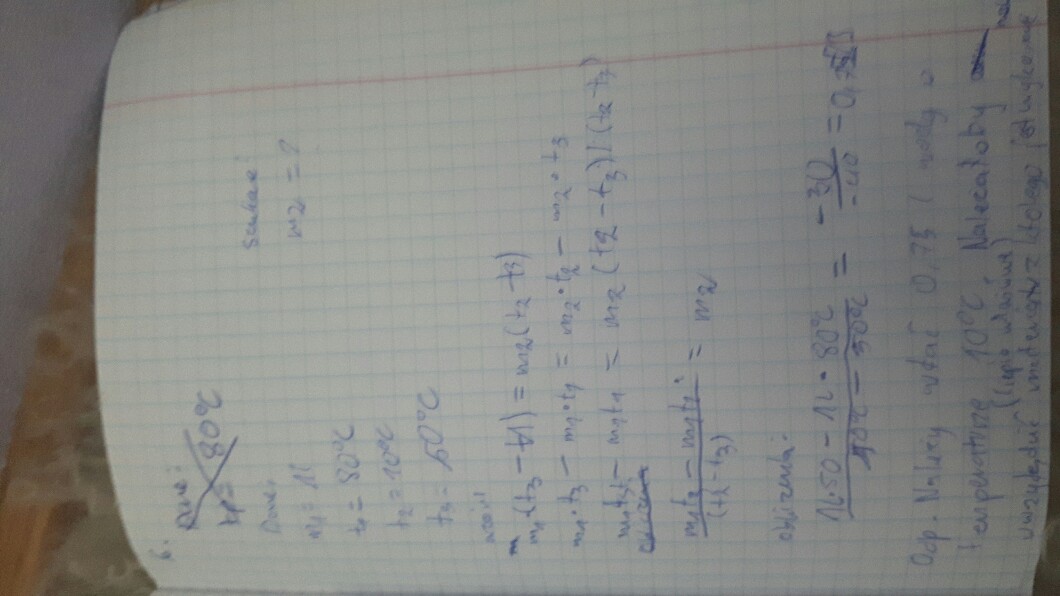 6.
Dane:
tp= 80°C
Dane:
m1 = 1l
t1 = 80°C
t2 = 10°C
t3 = 50°C
Szukane:
m2 = ?
m1(t3 - t1) = m2(t2 - t3)
m1 • t3 - m1 • t1 = m2 • t2 - m2 • t3
m1t3 - m1t1 = m2 (t2 - t3) | (t2 - t3)
m1t3 - m1t1 / (t2 - t3) = m2
obliczenia:
1l • 50 - 1l • 80°C / 10°C - 50°C = -30 / -40 = 0,75
Odp. Należy wlać 0,75 l wody o
temperaturze 10°C. Należałoby
(ciepło właściwe)
uwzględnić